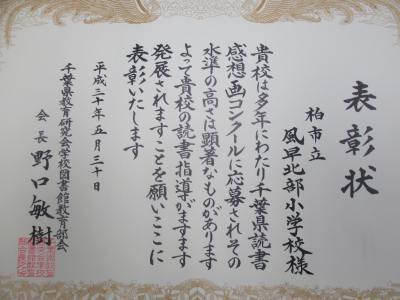 表彰状
柏市立
風早北部小学校様
貴校は多年にわたり千葉県読書
感想画コンクールに応募されその
水準の高さは顕著なものがあります
よって貴校の読書指導がますます
発展されますことを願いここに
表彰いたします
平成三十年五月三十日
千葉県教育研究会学校図書館教育部会
会長 野口敏樹